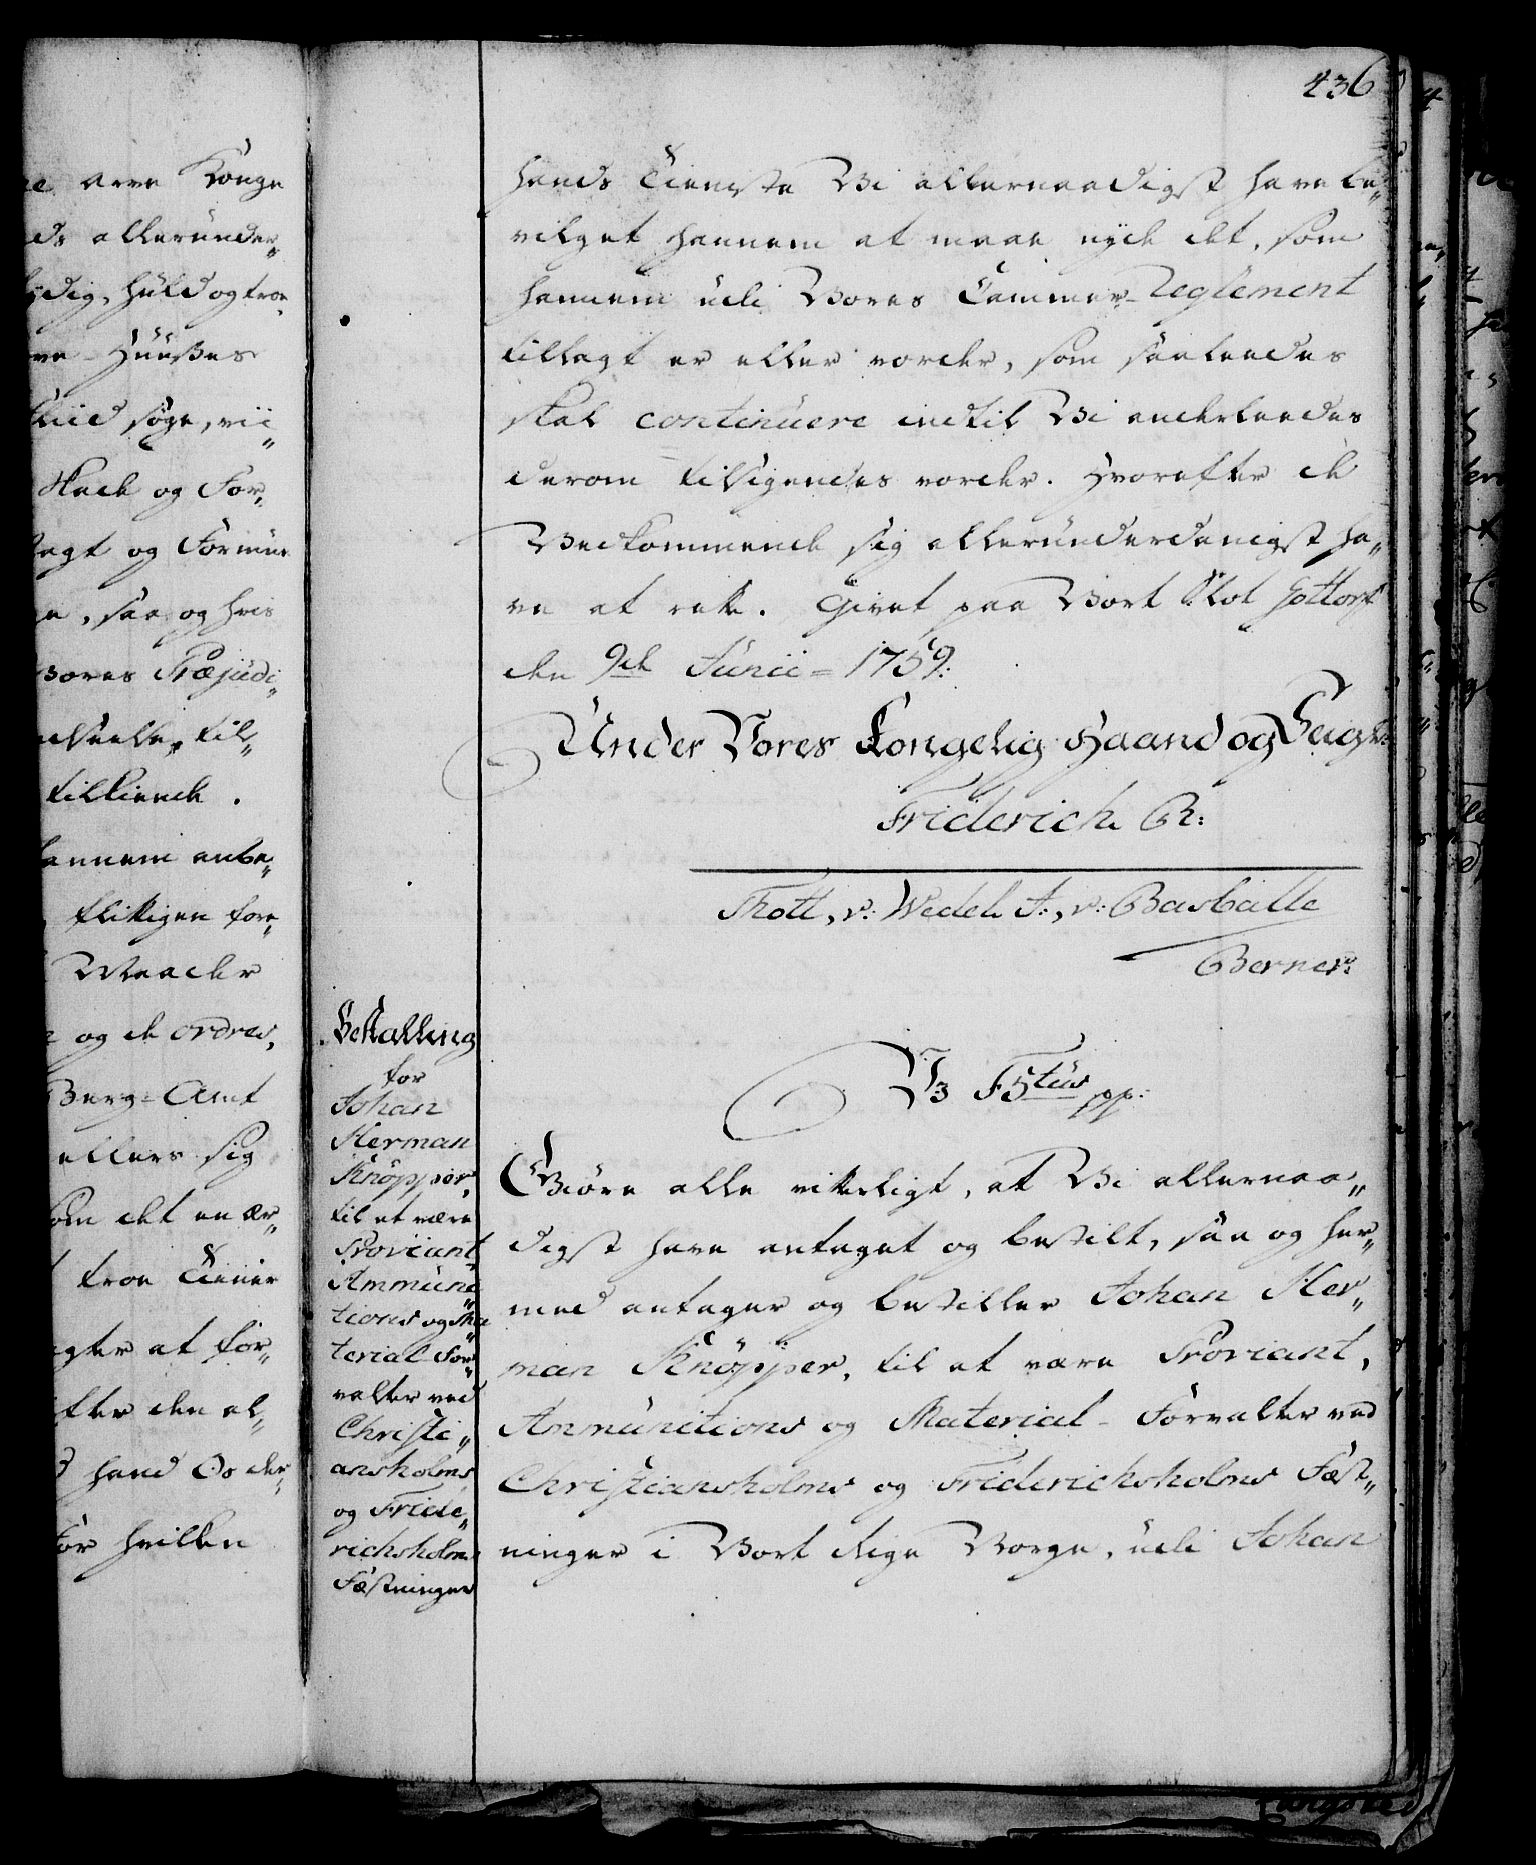 436
hands Tieneste Vi allernaadigst have be„
vilget hannem at maae nyde det, som
hannem udi Vores Cammer-Reglement
tillagt er eller vorder, som saaleedes
skal continuere indtil Vi anderleedes
derom tilsigendes vorder. Hvorefter de
Vedkommende sig allerunderdanigst ha„
ve at rette. Givet paa Vort Slot Gottorf
den 9de Junii = 1759.
Under Vores Kongelig Haand og Seigl:
Friderich R:
Thott, v: Wedel F:, v: Basballe
Berner:
Bestalling
for
Johan
Herman
Knöpper,
til at være
Proviant
Ammuni
tions og Ma
terial For„
valter ved
Christi„
ansholms
og Fride„
richsholms
Fæstninger
V3 F5tus pp:
Giöre alle vitterligt, at Vi allernaa„
digst have antaget og bestilt, saa og her„
med antager og bestiller Johan Her„
man Knöpper, til at være Proviant,
Ammunitions og Material-Forvalter ved
Christiansholms og Friderichsholms Fæst„
ninger i Vort Rige Norge, udi Johan
arve Konge
allerunder„
dig, huld og troe
Huuses
tiid søge, vii„
Skade og For„
og Formue
, saa og hvis
Vores Præjudi„
til„
tilkiende.
hannem anbe„
flittigen fore„
Maader
og de ordres,
Berg-Amt
ellers sig
som det en ær„
troe Tiener
at for„
efter den al„
hand Os der„
for hvilken